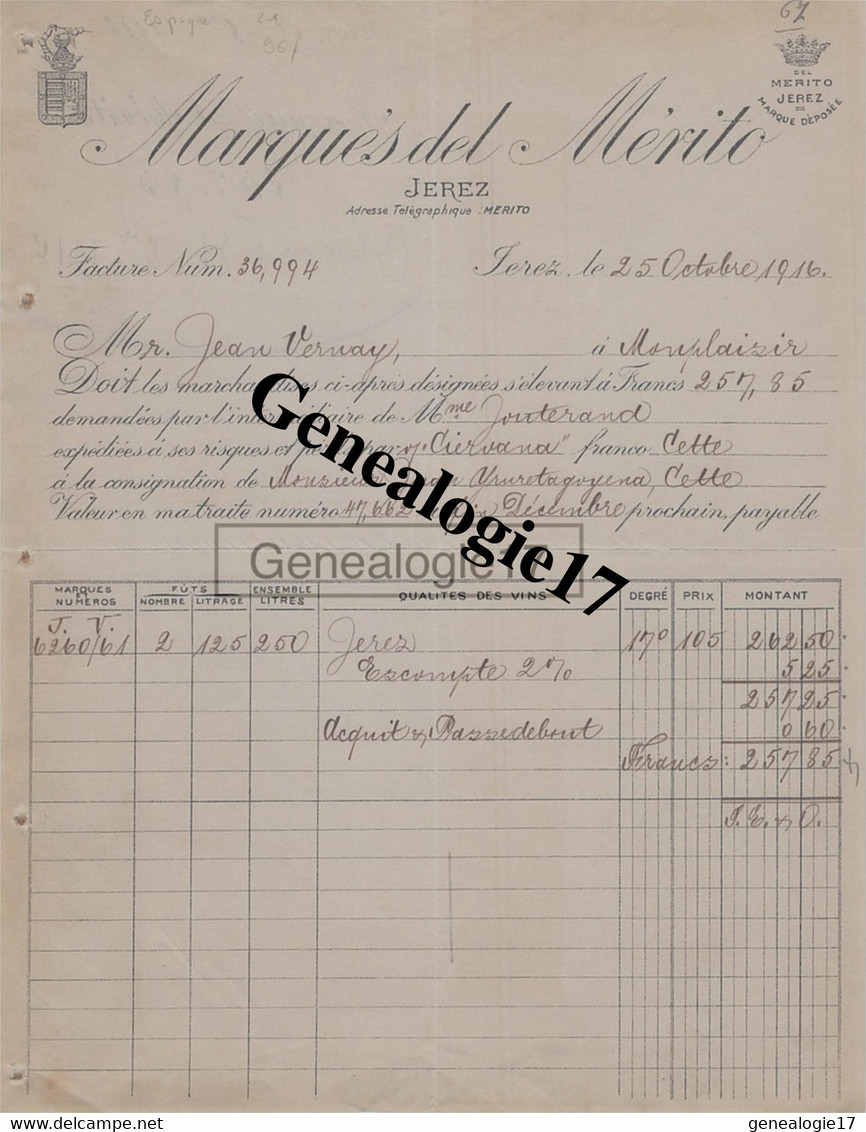 Espagne 21
96/
67
DEL
MERITO
JEREZ
MARQUE DÉPOSÉE
Marqués del Mérito
JEREZ
Adresse Télégraphique : MERITO
Facture Num. 36,994 Jerez, le 25 Octobre 1916.
Mr. Jean Vernay, à Monplaizir
Doit les marchandises ci-après désignées s'élevant à Francs 257,85
demandées par l'intermédiaire de Mme Jouterand
expédiées à ses risques et par "Ciervana" franco Cette
à la consignation de Monsieur Yruretagoyena, Cette
Valeur en ma traite numéro 47,662 fin Décembre prochain, payable
Genealogie17
Genealogie17
MARQUES ET NUMEROS FÛTS NOMBRE LITRAGE ENSEMBLE LITRES QUALITÉS DES VINS DEGRÉ PRIX MONTANT
J. V.
6260/61 2 125 250 Jerez 17º 105 262 50
Escompte 2% 5 25
257 25
Acquit & Passedebout 0 60
Francs: 257 85
S. E. & O.
www.delcampe.net genealogie17